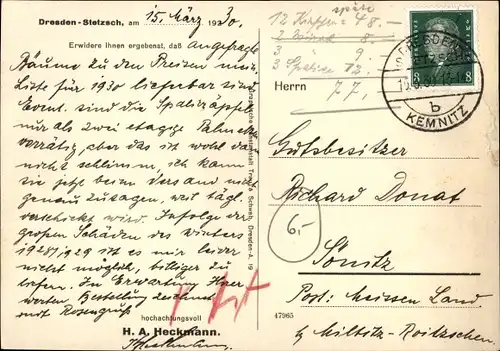 Dresden-Stetzsch, am 15. März 1930.
Erwidere Ihnen ergebenst, daß angefragte
Bäume zu den Preisen meiner
Liste für 1930 lieferbar sind
Event. sind die Spalieräpfel
nur als zwei etagige Palmetten
vorrätig, aber das ist wohl dann
nicht schlimm, ich kann
sie jetzt beim Versand nicht
genau zusagen, weil tägl.
verschickt wird. Infolge der
großen Schäden des Winters
1928/1929 ist es mir leider
nicht möglich, billiger zu
liefern. In Erwartung Ihrer
werten Bestellung zeichnet
mit Rosengruß
hochachtungsvoll
H. A. Heckmann.
HHeckmann.
12 48.-
2 8.-
3 9.-
3 Spaliere 12.-
77,-
DRESDEN
b
KEMNITZ
8 8
Herrn
Gutsbesitzer
Richard Donat
6.-
Sönitz
Post: Meissen Land
b/ Miltitz-Roitzschen.
47965